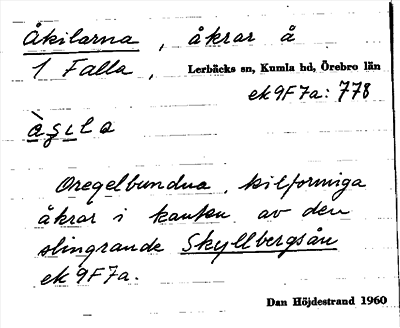 Åkilarna, åkrar å
1 Falla, Lerbäcks sn, Kumla hd, Örebro län
ek 9F7a: 778
Oregelbundna, kilformiga
åkrar i kanten av den
slingrande Skyllbergsån
ek 9F7a.
Dan Höjdestrand 1960